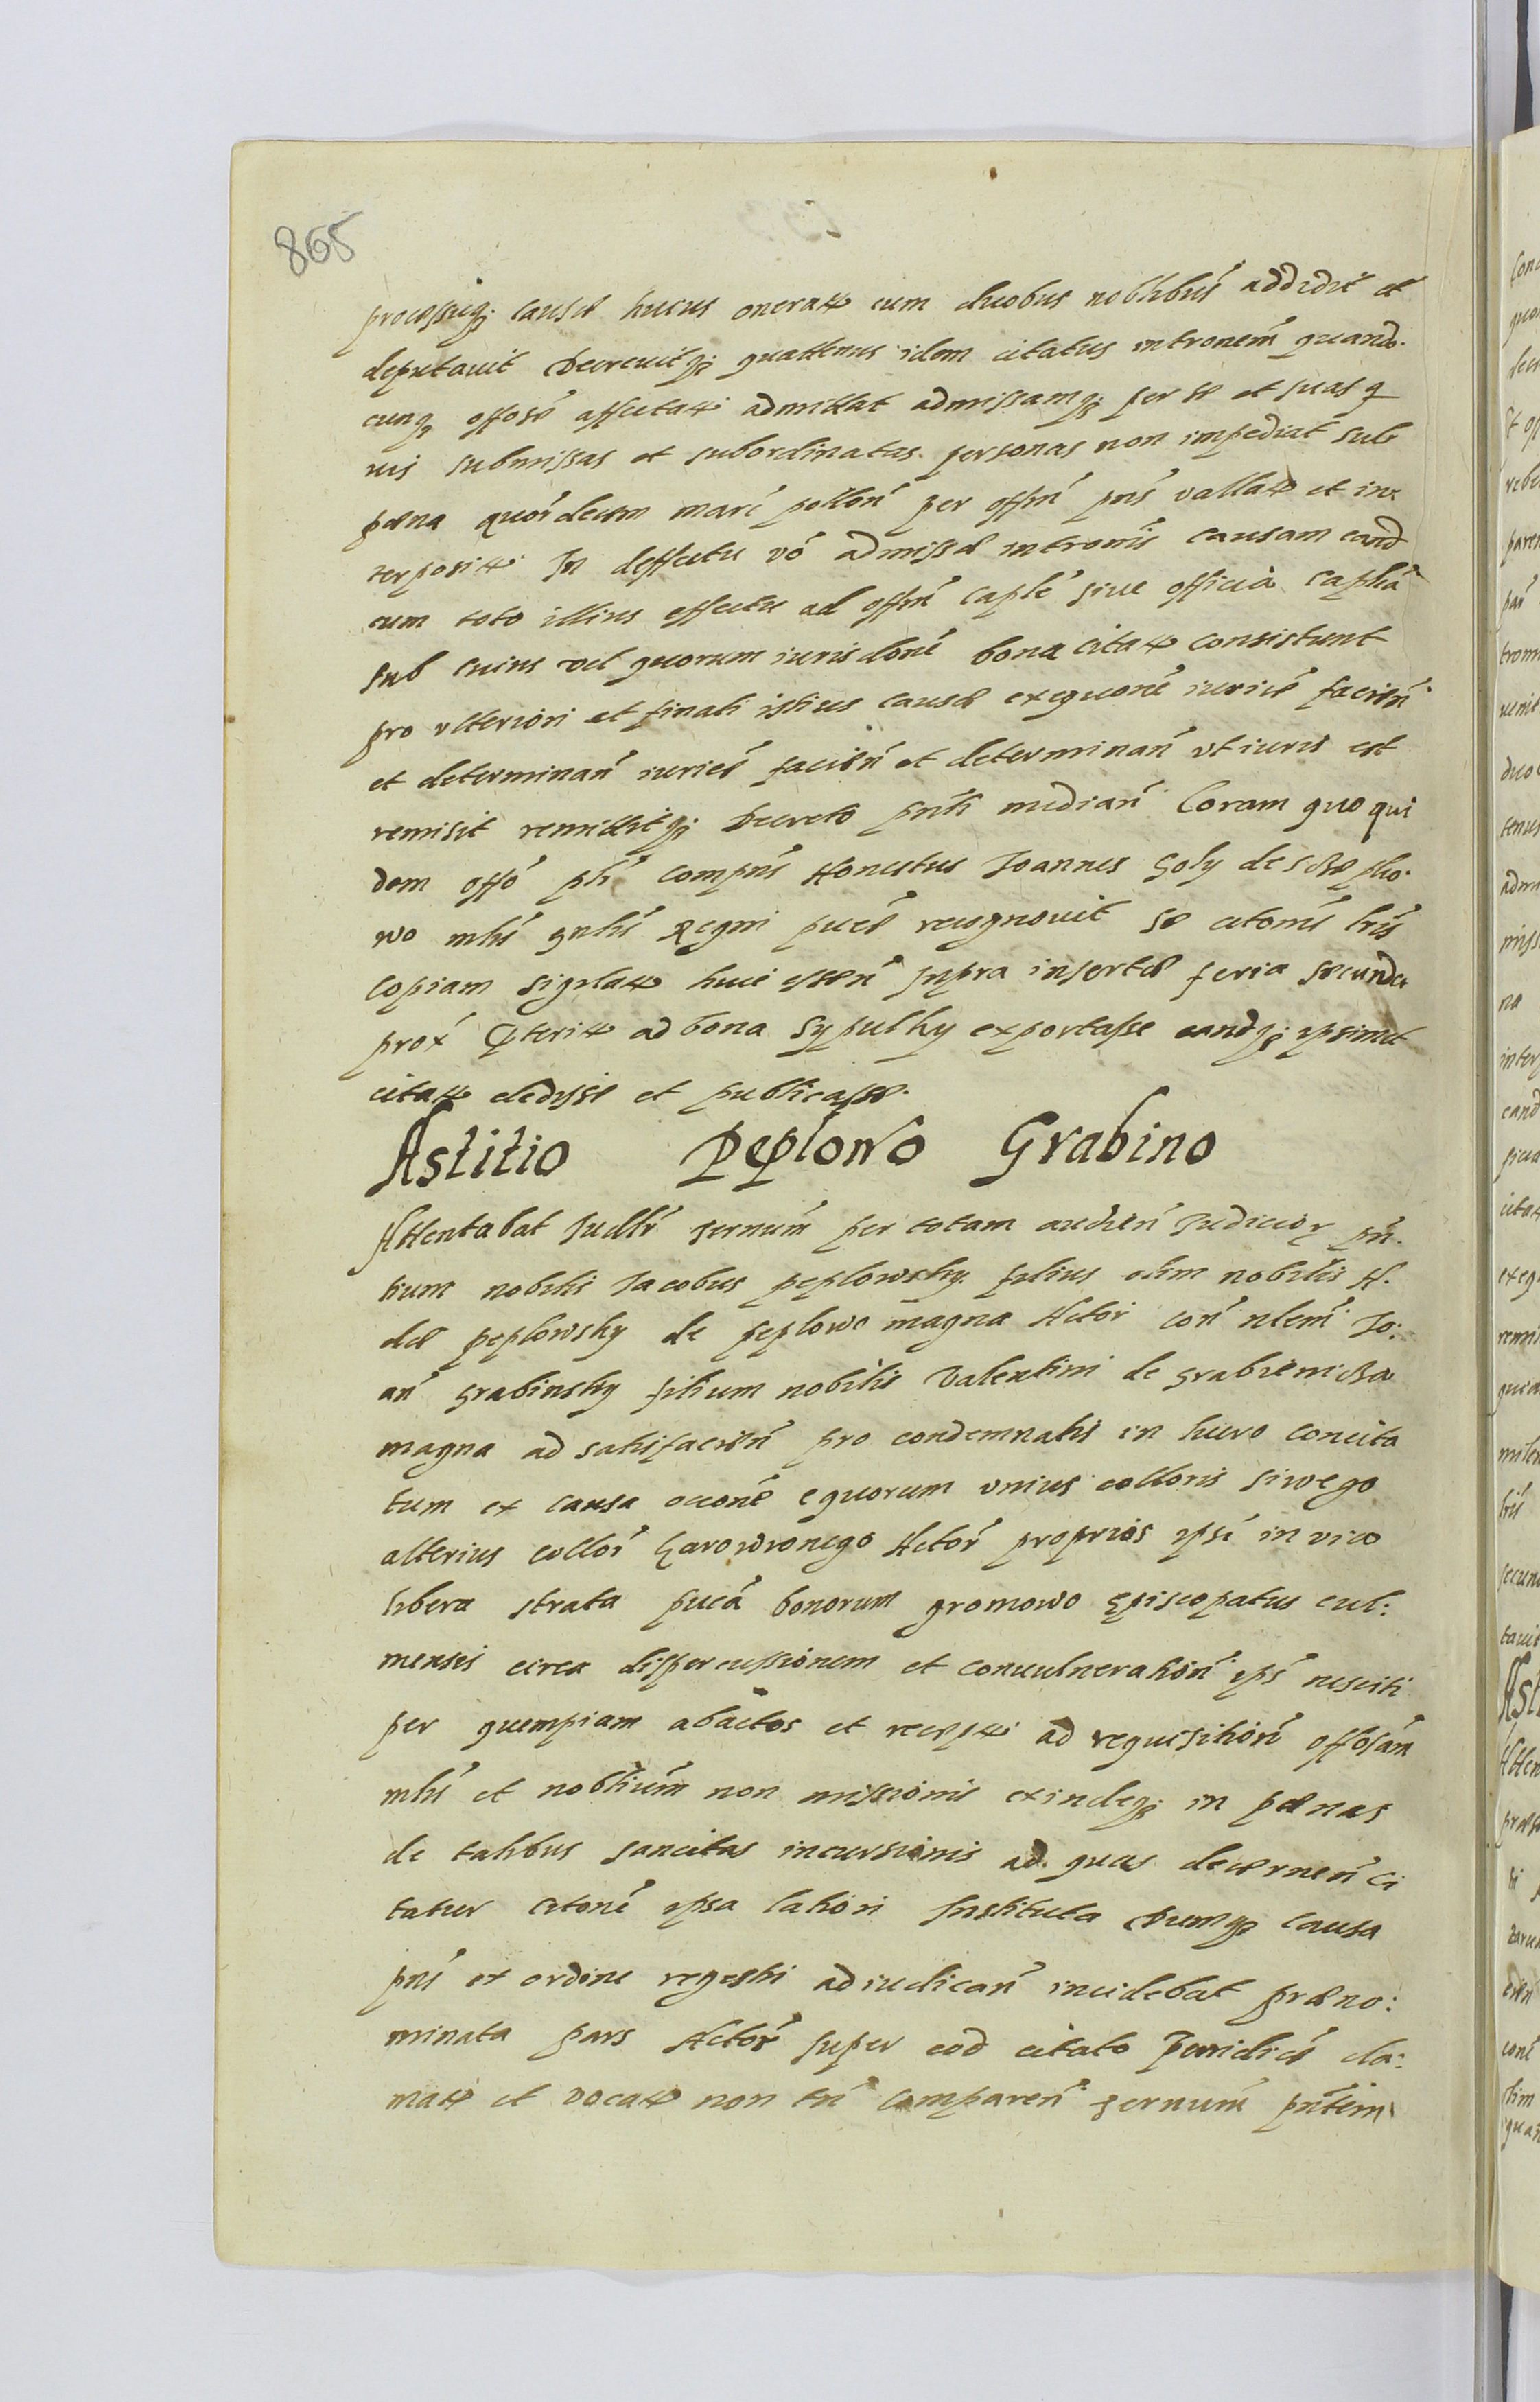 865
processuq causæ huius onerat cum duobus nobilibus addidit et
deputavit Decrevitq quattenus idem citatus intronem quand.
cunq offose affectat admittat admissamq per se et suas q
vis submissas et subordinatas personas non impediat sub
pæna quordecim marc pollon per offm pns vallat et in
terposit In deffectu vo admissæ intromis causam eand
cum toto illius effectu ad offm caple sive officia caplia
sub cuius vel quorum iurisdone bona citat consistunt
pro ulteriori et finali istius causæ exequone iurice facien
et determinan iurice facien et determinan ut iuris est
remisit remittitq Decreto pnti median Coram quo qui
dem offo pti compns Honestus Joannes Goly de
wo mlis gnlis Regni puce recognovit se citonis lris
copiam sigilat huic essen supra insertæ feria secunda
prox pterit ad bona Sypulky exportasse eandq ipsimet
citat dedisse et publicasse.
Astitio Peplowo Grabino
Attentabat Iudltr ternum per totam audien Iudicior pn-
tium nobilis Jacobus peplowsky filius olim nobilis A.
dæ peplowsky de peplowo magna Actor con nlem Jo:
an Grabinsky filium nobilis Valentini de
magna ad satisfacien pro condemnatis in huno concita
tum ex causa ocione equorum unius colloris siwego
alterius collor Actor proprios ipsi in vico
libera strata puca bonorum gromowo Episcopatus cul:
mensis circa dispercussionem et convulneration ips nesciti
per quempiam abactos et recept ad requisition offosam
mlis et nobilium non missionis exindeq in pænas
de talibus sancitas incursionis ad quas decernen ci
tatur citone ipsa latiori Instituta Dumq causa
pns ex ordine regestri adiudican incidebat præno:
minata pars Actor super eod citato Iuridice cla:
mat et vocat non tn comparen ternum pntem